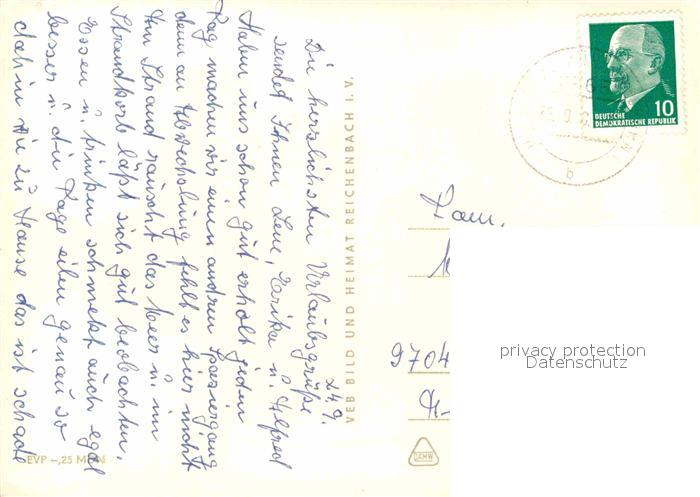 24.9.
Die herzlichsten Urlaubsgrüße
sendet Ihnen Lene, Erika u. Alfred
Haben uns schon gut erholt jeden
Tag machen wir einen andren Spaziergang
denn an Abwechslung fehlt es hier nicht
Am Strand rauscht das Meer u. im
Strandkorb läßt sich gut beobachten,
Essen u. trinken schmeckt auch egal
besser u. die Tage eilen genau so
dahin wie zu Hause das ist schade
VEB BILD UND HEIMAT REICHENBACH I. V.
EVP -,25 MDN
DEUTSCHE
DEMOKRATISCHE REPUBLIK
10
b
Fam.
9704
privacy protection
Datenschutz